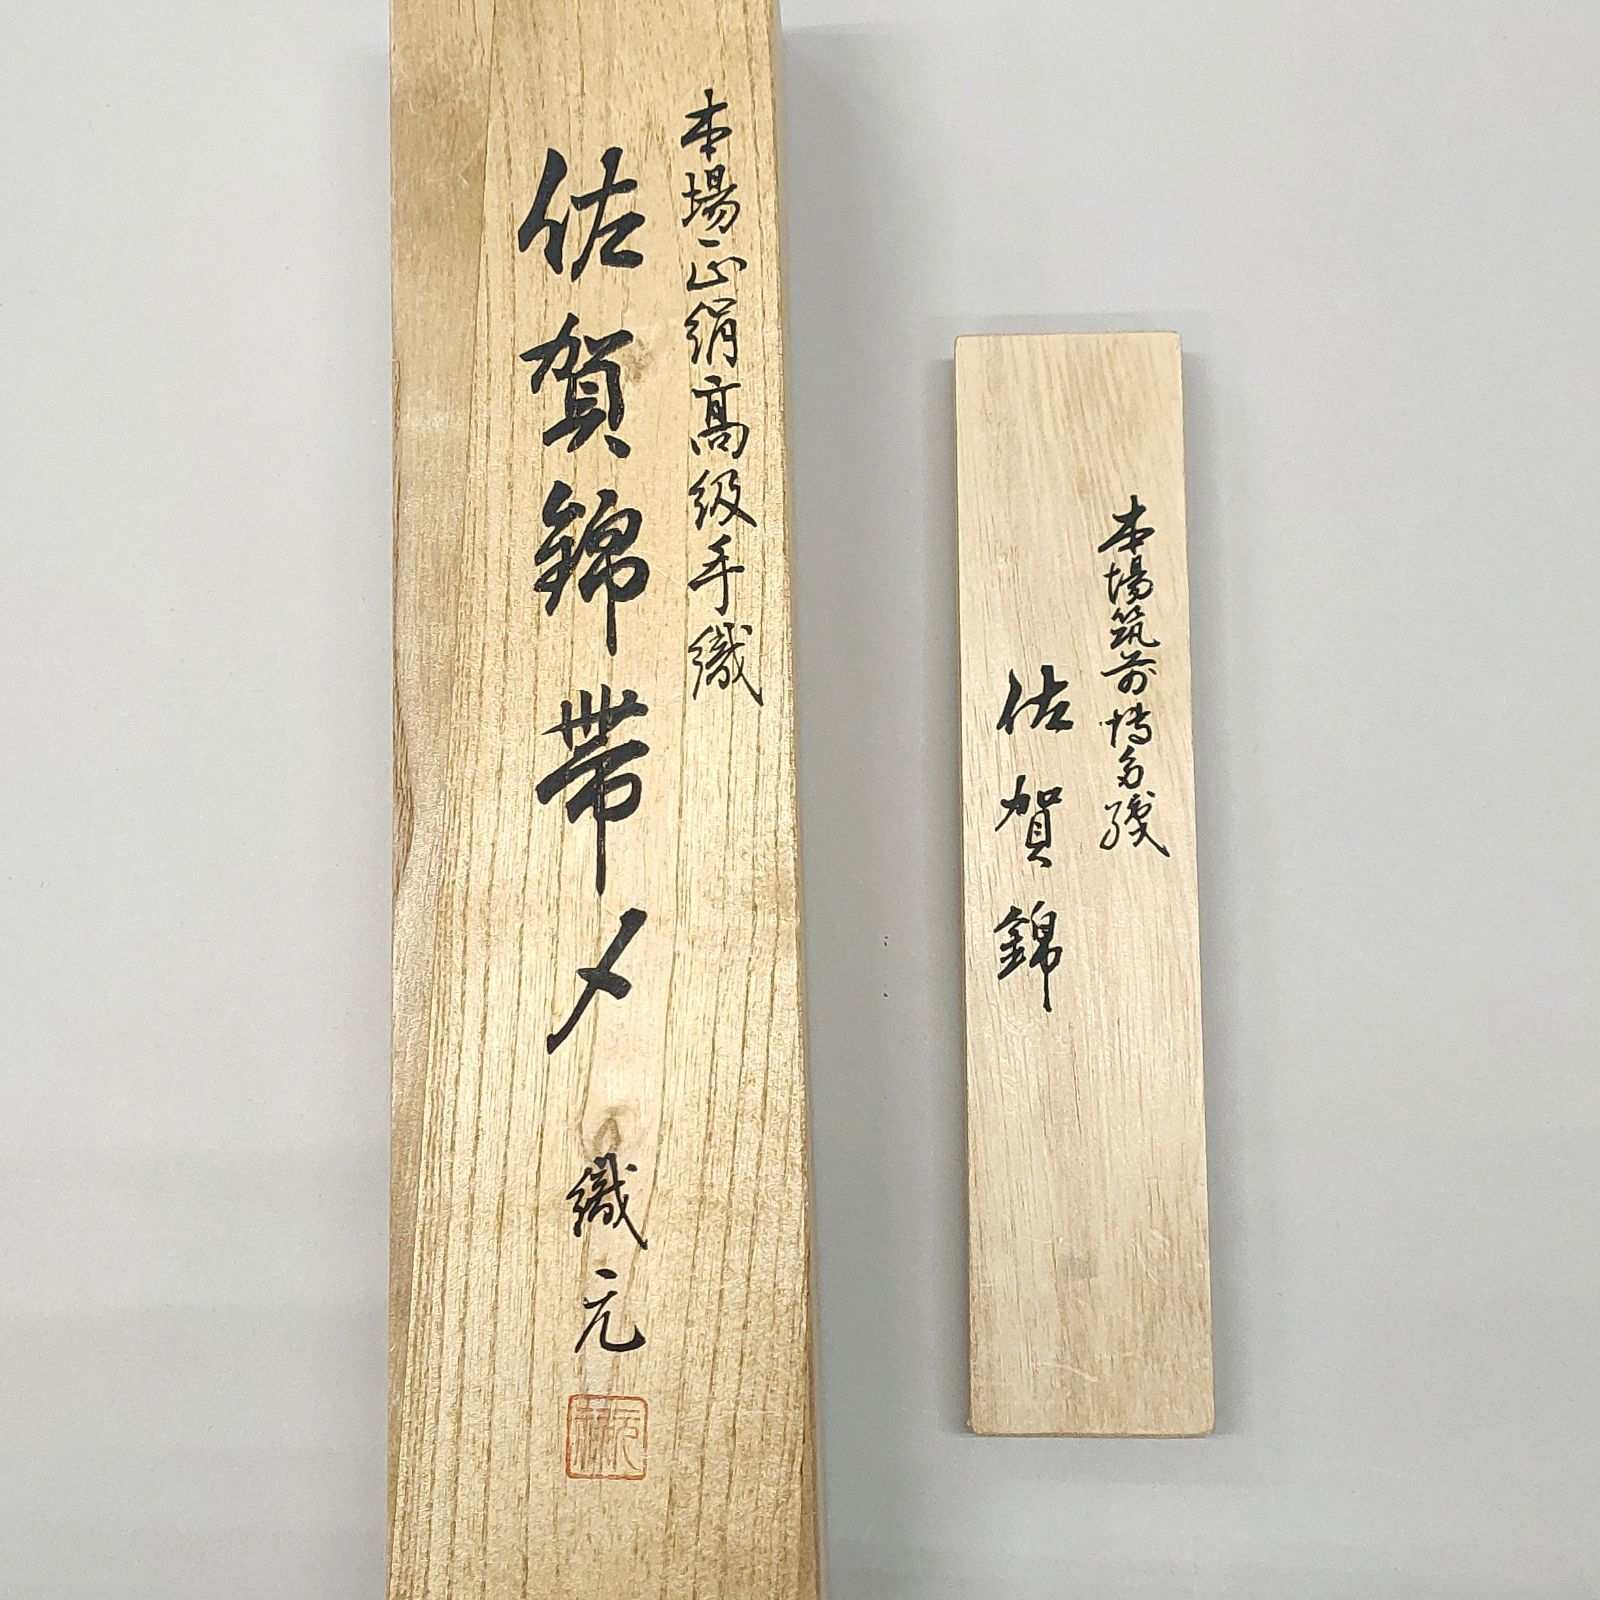 本場正絹高級手織
佐賀錦帯〆
織元
本場筑前博多織
佐賀錦